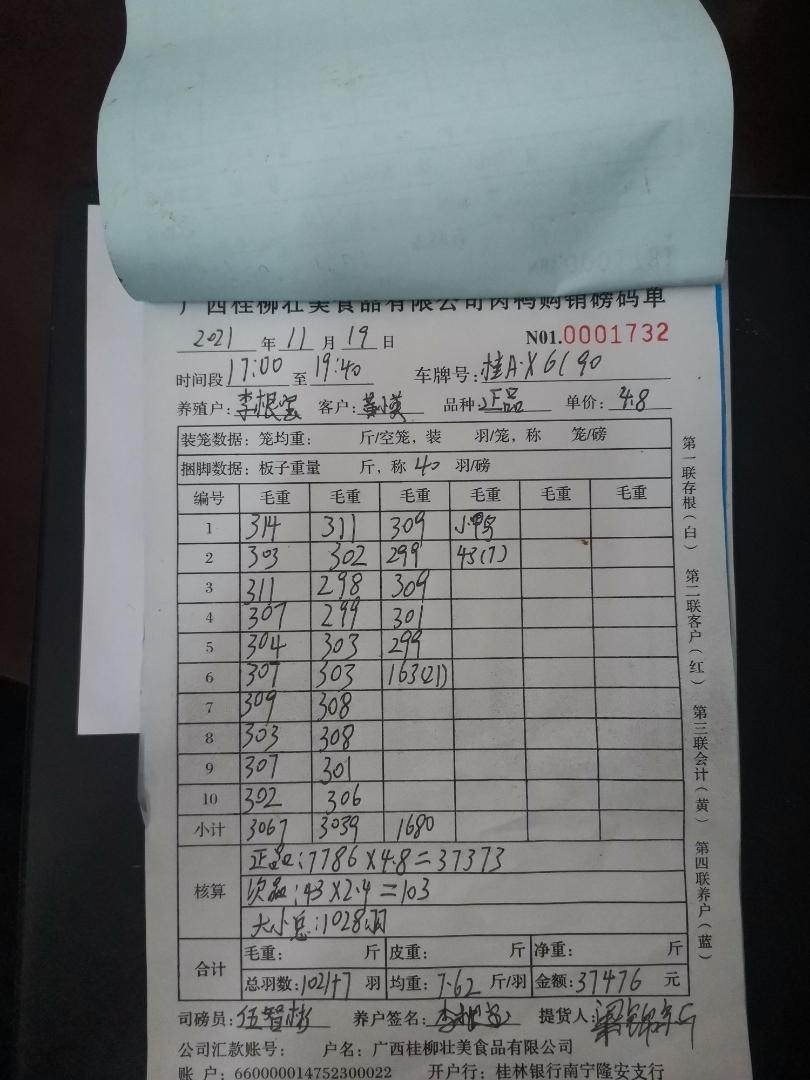 广西桂柳壮美食品有限公司肉鸭购销磅码单
2021 年 11 月 19 日 N01.0001732
时间段 17:00 至 19:40 车牌号: 桂A·X6190
养殖户: 李根 客户: 黄小英 品种: 正品 单价: 4.8
装笼数据: 笼均重: 斤/空笼, 装 羽/笼, 称 笼/磅
捆脚数据: 板子重量 斤, 称 40 羽/磅
编号 毛重 毛重 毛重 毛重 毛重 毛重
1 314 311 309 小鸭
2 303 302 299 43(7)
3 311 298 309
4 307 299 301
5 304 303 299
6 307 303 163(21)
7 309 308
8 303 308
9 307 301
10 302 306
小计 3067 3039 1680
核算
正品:7786×4.8=37373
次品:43×2.4=103
大小总:1028羽
合计
毛重: 斤 皮重: 斤 净重: 斤
总羽数:1021+7 羽 均重:7.62 斤/羽 金额:37476 元
司磅员: 伍智彬 养户签名: 李根 提货人: 梁锦
公司汇款账号: 户名: 广西桂柳壮美食品有限公司
账 户: 660000014752300022 开户行: 桂林银行南宁隆安支行
第一联存根(白) 第二联客户(红) 第三联会计(黄) 第四联养户(蓝)